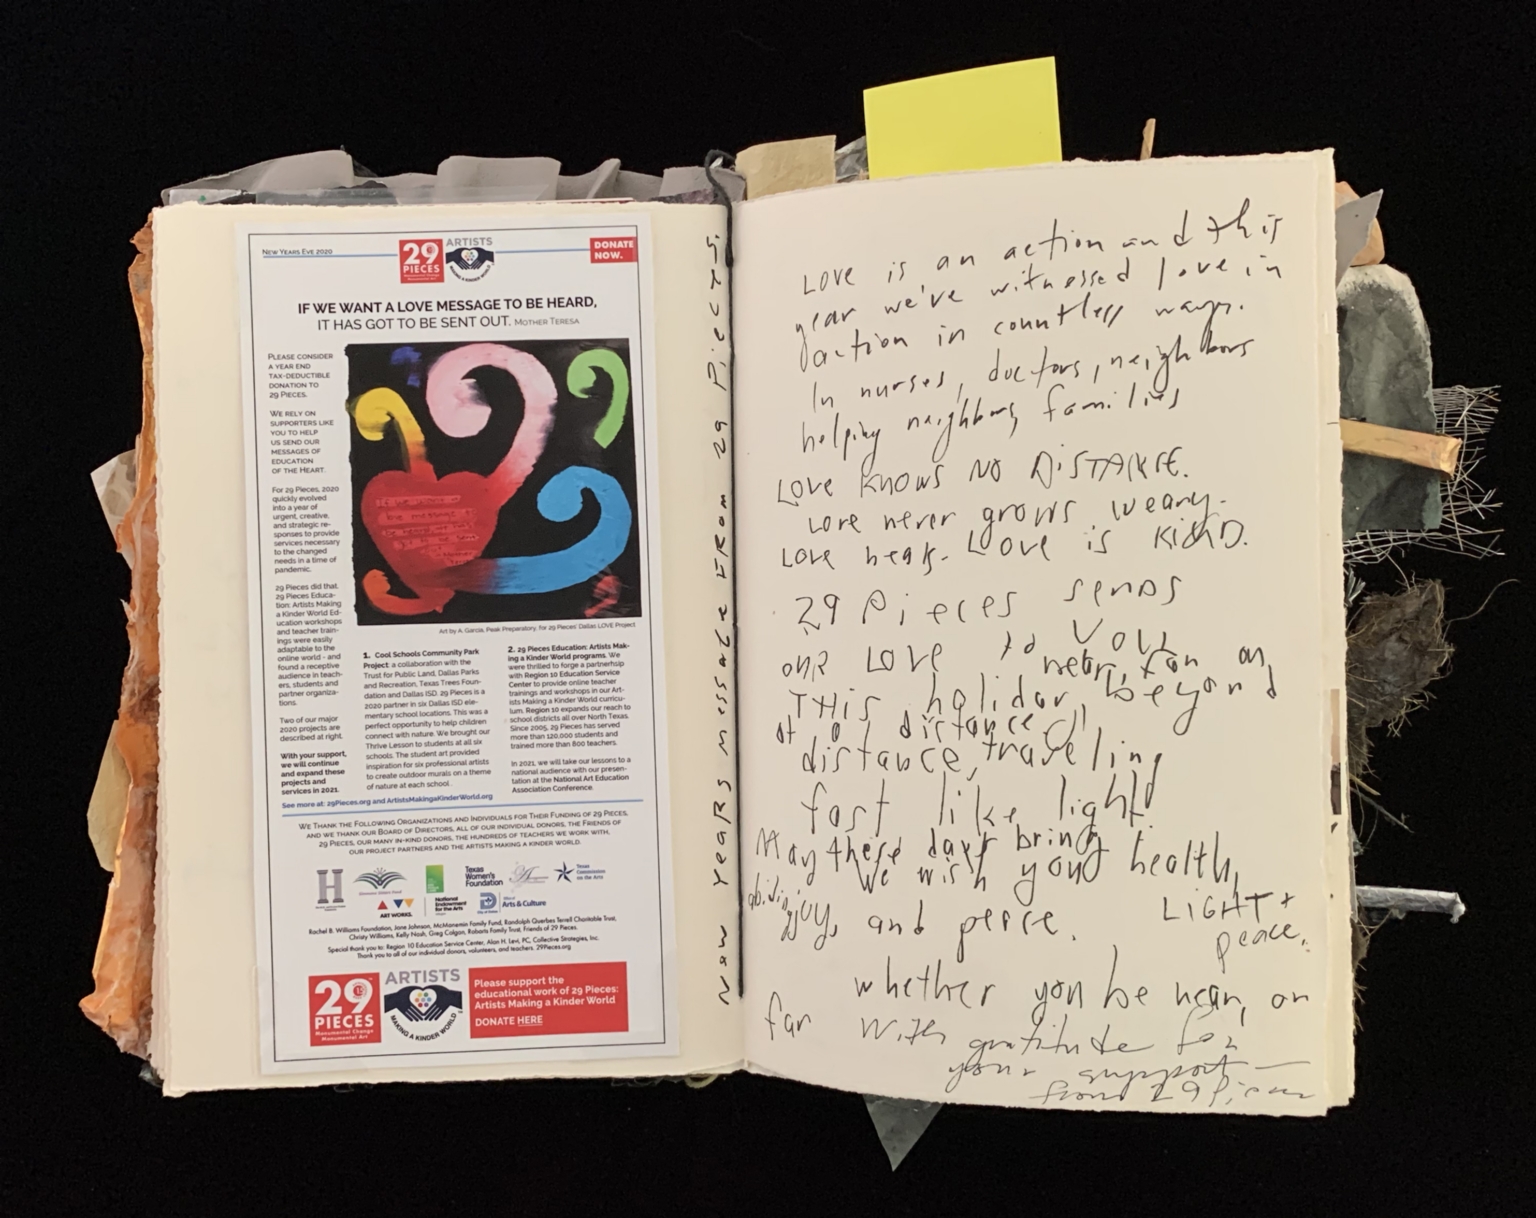 NEW YEARS EVE 2020
29 PIECES
Monumental Change
Monumental Art
ARTISTS
MAKING A KINDER WORLD
DONATE
NOW.
IF WE WANT A LOVE MESSAGE TO BE HEARD,
IT HAS GOT TO BE SENT OUT. MOTHER TERESA
PLEASE CONSIDER
A YEAR END
TAX-DEDUCTIBLE
DONATION TO
29 PIECES.
WE RELY ON
SUPPORTERS LIKE
YOU TO HELP
US SEND OUR
MESSAGES OF
EDUCATION
OF THE HEART.
For 29 Pieces, 2020
quickly evolved
into a year of
urgent, creative,
and strategic re-
sponses to provide
services necessary
to the changed
needs in a time of
pandemic.
29 Pieces did that.
29 Pieces Educa-
tion: Artists Making
a Kinder World Ed-
ucation workshops
and teacher train-
ings were easily
adaptable to the
online world - and
found a receptive
audience in teach-
ers, students and
partner organiza-
tions.
Two of our major
2020 projects are
described at right.
With your support,
we will continue
and expand these
projects and
services in 2021.
See more at: 29Pieces.org and ArtistsMakingaKinderWorld.org
Art by A. Garcia, Peak Preparatory, for 29 Pieces' Dallas LOVE Project
1. Cool Schools Community Park
Project: a collaboration with the
Trust for Public Land, Dallas Parks
and Recreation, Texas Trees Foun-
dation and Dallas ISD. 29 Pieces is a
2020 partner in six Dallas ISD ele-
mentary school locations. This was a
perfect opportunity to help children
connect with nature. We brought our
Thrive Lesson to students at all six
schools. The student art provided
inspiration for six professional artists
to create outdoor murals on a theme
of nature at each school.
2. 29 Pieces Education: Artists Mak-
ing a Kinder World programs. We
were thrilled to forge a partnerhsip
with Region 10 Education Service
Center to provide online teacher
trainings and workshops in our Art-
ists Making a Kinder World curricu-
lum. Region 10 expands our reach to
school districts all over North Texas.
Since 2005, 29 Pieces has served
more than 120,000 students and
trained more than 800 teachers.
In 2021, we will take our lessons to a
national audience with our presen-
tation at the National Art Education
Association Conference.
WE THANK THE FOLLOWING ORGANIZATIONS AND INDIVIDUALS FOR THEIR FUNDING OF 29 PIECES,
AND WE THANK OUR BOARD OF DIRECTORS, ALL OF OUR INDIVIDUAL DONORS, THE FRIENDS OF
29 PIECES, OUR MANY IN-KIND DONORS, THE HUNDREDS OF TEACHERS WE WORK WITH,
OUR PROJECT PARTNERS AND THE ARTISTS MAKING A KINDER WORLD.
Texas
Women's
Foundation
Texas
Commission
on the Arts
ART WORKS.
National
Endowment
for the Arts
City of Dallas
Office of
Arts & Culture
Rachel B. Williams Foundation, Jane Johnson, McManemin Family Fund, Randolph Querbes Terrell Charitable Trust,
Christy Williams, Kelly Nash, Greg Colgan, Roberts Family Trust, Friends of 29 Pieces.
Special thank you to: Region 10 Education Service Center, Alan H. Levi, PC, Collective Strategies, Inc.
Thank you to all of our individual donors, volunteers, and teachers. 29Pieces.org
29 PIECES
Monumental Change
Monumental Art
ARTISTS
MAKING A KINDER WORLD
Please support the
educational work of 29 Pieces:
Artists Making a Kinder World
DONATE HERE
New Years message from 29 Pieces.
Love is an action and this
year we've witnessed love in
action in countless ways.
In nurses, doctors, neighbors
helping neighbors, families
Love knows NO DISTANCE.
Love never grows weary.
Love heals. Love is KIND.
29 Pieces sends
our Love to YOU
near, far or
THIS holiday, beyond
at a distance
distance, traveling
fast like light
May these days bring
We wish you health,
abiding
joy, and peace.
LIGHT +
peace.
whether you be near, or
far With gratitude for
your support—
from 29 Pieces